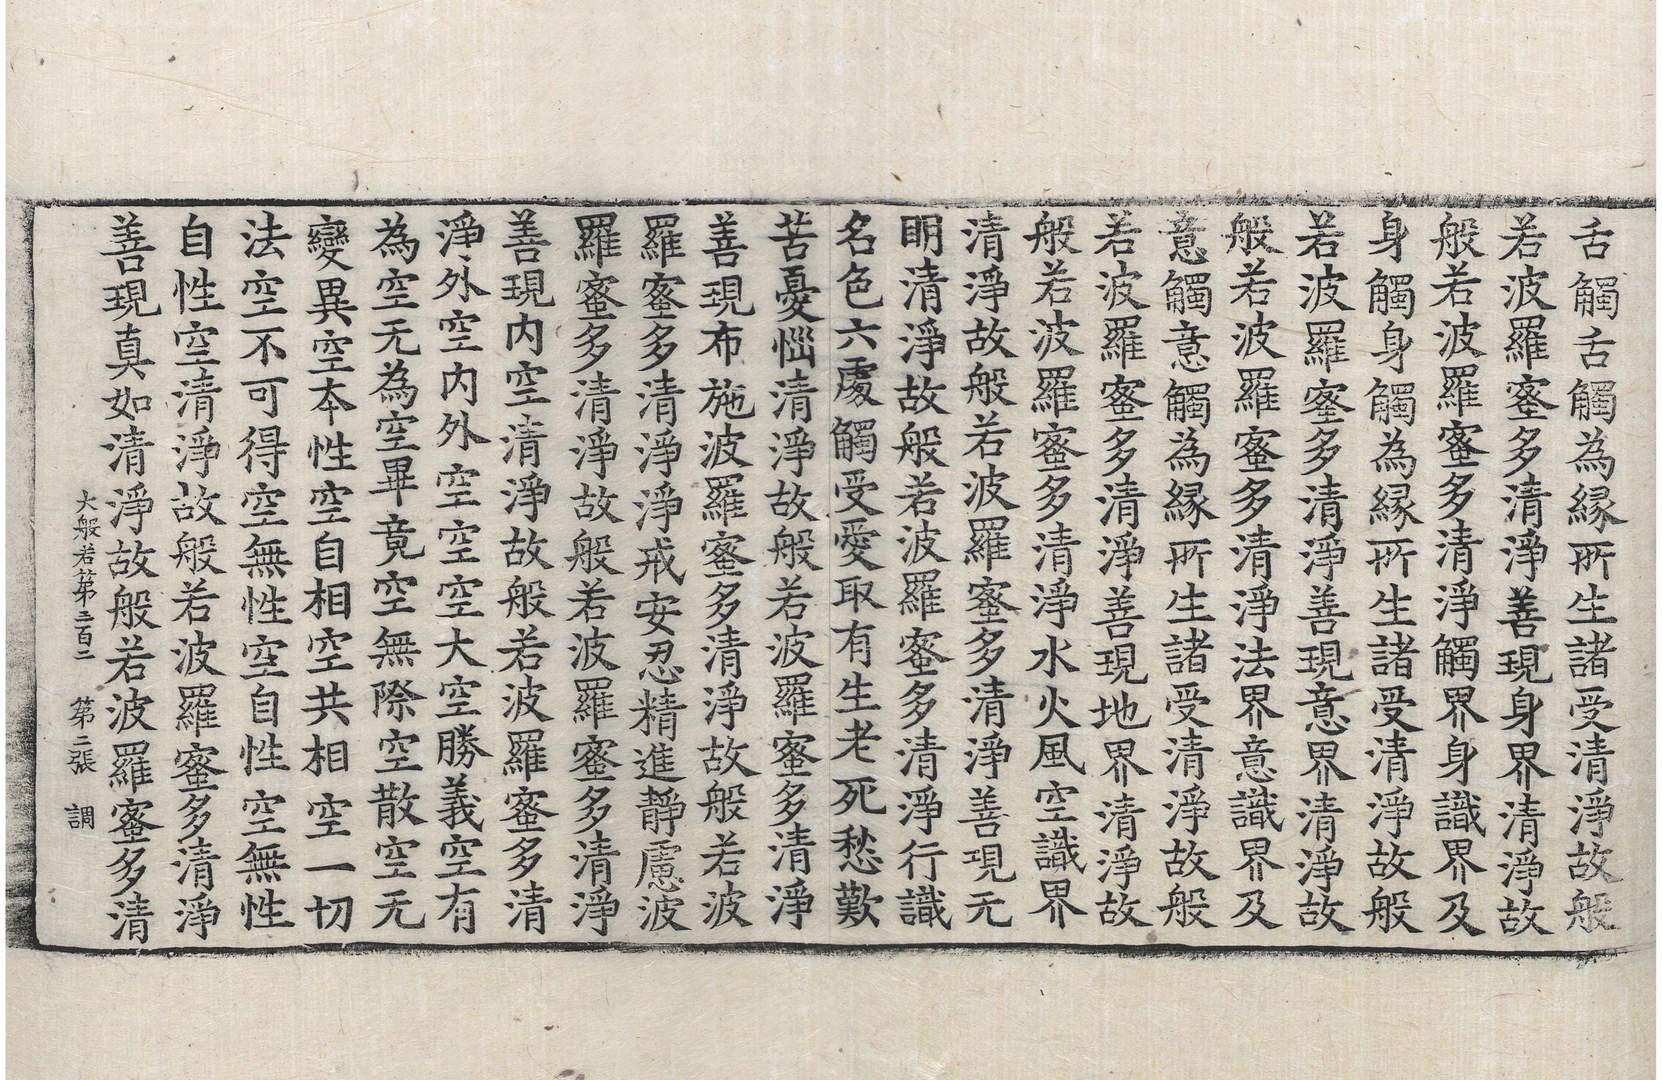 舌觸舌觸為縁所生諸受清淨故般
若波羅蜜多清淨善現身界清淨故
般若波羅蜜多清淨觸界身識界及
身觸身觸為縁所生諸受清淨故般
若波羅蜜多清淨善現意界清淨故
般若波羅蜜多清淨法界意識界及
意觸意觸為縁所生諸受清淨故般
若波羅蜜多清淨善現地界清淨故
般若波羅蜜多清淨水火風空識界
清淨故般若波羅蜜多清淨善現无
明清淨故般若波羅蜜多清淨行識
名色六處觸受愛取有生老死愁歎
苦憂惱清淨故般若波羅蜜多清淨
善現布施波羅蜜多清淨故般若波
羅蜜多清淨淨戒安忍精進靜慮波
羅蜜多清淨故般若波羅蜜多清淨
善現内空清淨故般若波羅蜜多清
淨外空内外空空空大空勝義空有
為空无為空畢竟空無際空散空无
變異空本性空自相空共相空一切
法空不可得空無性空自性空無性
自性空清淨故般若波羅蜜多清淨
善現真如清淨故般若波羅蜜多清
大般若第三百二　第二張　調